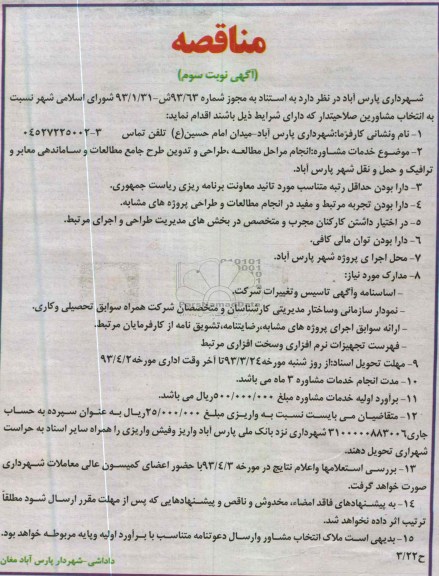 مناقصه
(آگهی نوبت سوم)
شهرداری پارس آباد در نظر دارد به استناد به مجوز شماره ۹۳/۶۳ش-۹۳/۱/۳۱ شورای اسلامی شهر نسبت
به انتخاب مشاورین صلاحیتدار که دارای شرایط ذیل باشند اقدام نماید:
۱- نام ونشانی کارفرما:شهرداری پارس آباد-میدان امام حسین(ع) تلفن تماس ۳-۰۴۵۲۷۲۲۵۰۰۲
۲-موضوع خدمات مشاوره:انجام مراحل مطالعه ،طراحی و تدوین طرح جامع مطالعات و ساماندهی معابر و
ترافیک و حمل و نقل شهر پارس آباد.
۳- دارا بودن حداقل رتبه متناسب مورد تائید معاونت برنامه ریزی ریاست جمهوری.
۴- دارا بودن تجربه مرتبط و مفید در انجام مطالعات و طراحی پروژه های مشابه.
۵- در اختیار داشتن کارکنان مجرب و متخصص در بخش های مدیریت طراحی و اجرای مرتبط.
۶- دارا بودن توان مالی کافی.
۷- محل اجرا ی پروژه شهر پارس آباد.
۸- مدارک مورد نیاز:
- اساسنامه وآگهی تاسیس وتغییرات شرکت.
- نمودار سازمانی وساختار مدیریتی کارشناسان و متخصصان شرکت همراه سوابق تحصیلی وکاری.
- ارائه سوابق اجرای پروژه های مشابه،رضایتنامه،تشویق نامه از کارفرمایان مرتبط.
- فهرست تجهیزات نرم افزاری وسخت افزاری مرتبط
۹- مهلت تحویل اسناد:از روز شنبه مورخه۹۳/۳/۲۴تا آخر وقت اداری مورخه۹۳/۴/۲
۱۰- مدت انجام خدمات مشاوره ۳ ماه می باشد.
۱۱- برآورد اولیه خدمات مشاوره مبلغ ۵۰۰/۰۰۰/۰۰۰ریال می باشد.
۱۲- متقاضیان می بایست نسبت به واریزی مبلغ ۲۵/۰۰۰/۰۰۰ریال به عنوان سپرده به حساب
جاری۳۱۰۰۰۰۰۸۸۳۰۰۶ شهرداری نزد بانک ملی پارس آباد واریز وفیش واریزی را همراه سایر اسناد به حراست
شهراری تحویل دهند.
۱۳- بررسی استعلامها واعلام نتایج در مورخه ۹۳/۴/۳با حضور اعضای کمیسون عالی معاملات شهرداری
صورت خواهد گرفت.
۱۴- به پیشنهادهای فاقد امضاء، مخدوش و ناقص و پیشنهادهایی که پس از مهلت مقرر ارسال شود مطلقاً
ترتیب اثر داده نخواهد شد.
۱۵-بدیهی است ملاک انتخاب مشاور وارسال دعوتنامه متناسب با برآورد اولیه وپایه مربوطه خواهد بود.
ح۳/۲۲
داداشی-شهردار پارس آباد مغان